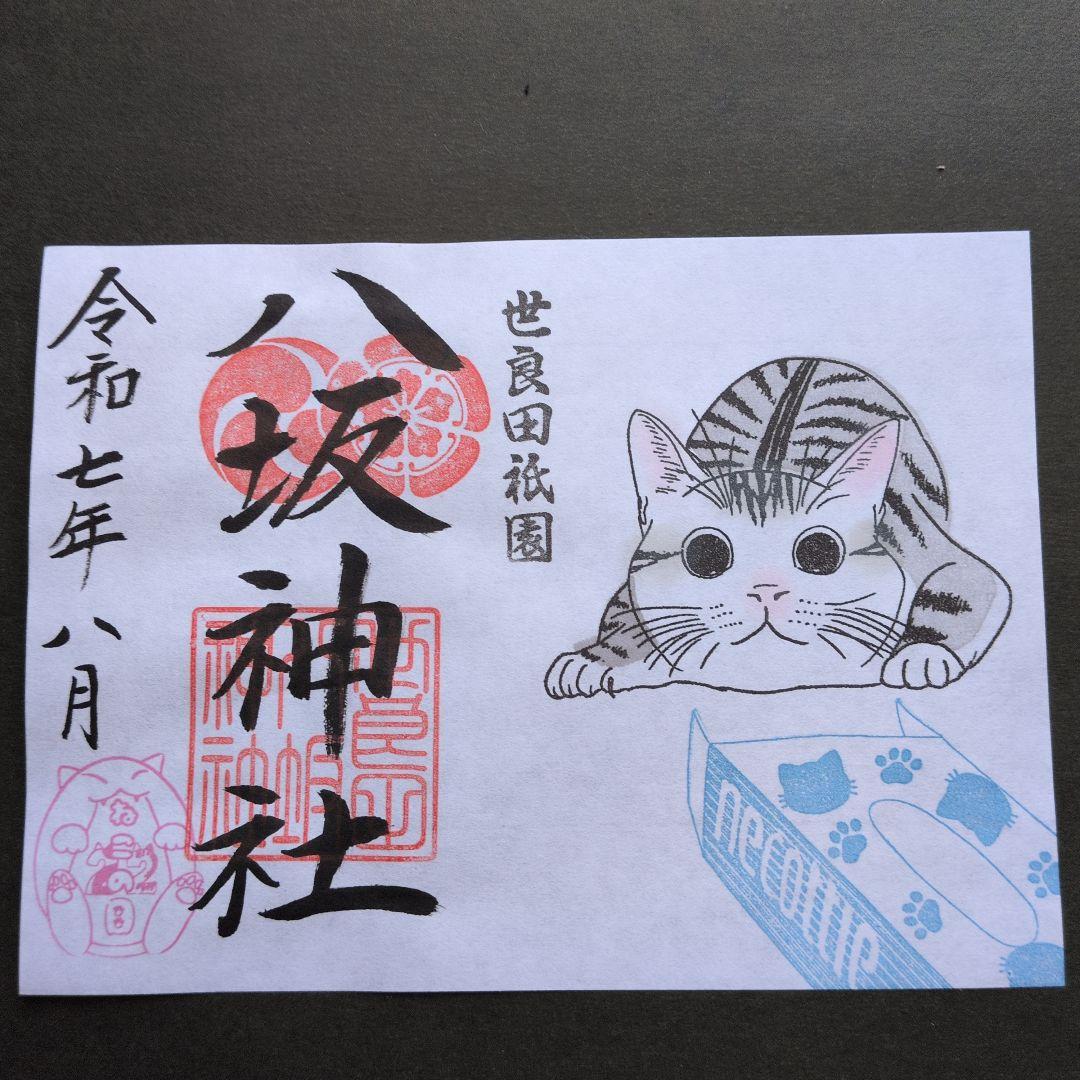 世良田祇園
八坂神社
令和七年八月